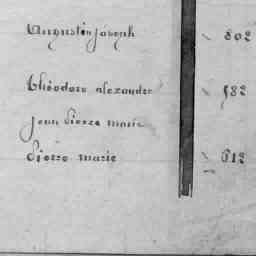 Augustin joseph 802
théodore alexandre 582
jean Pierre marie
Pierre marie 612